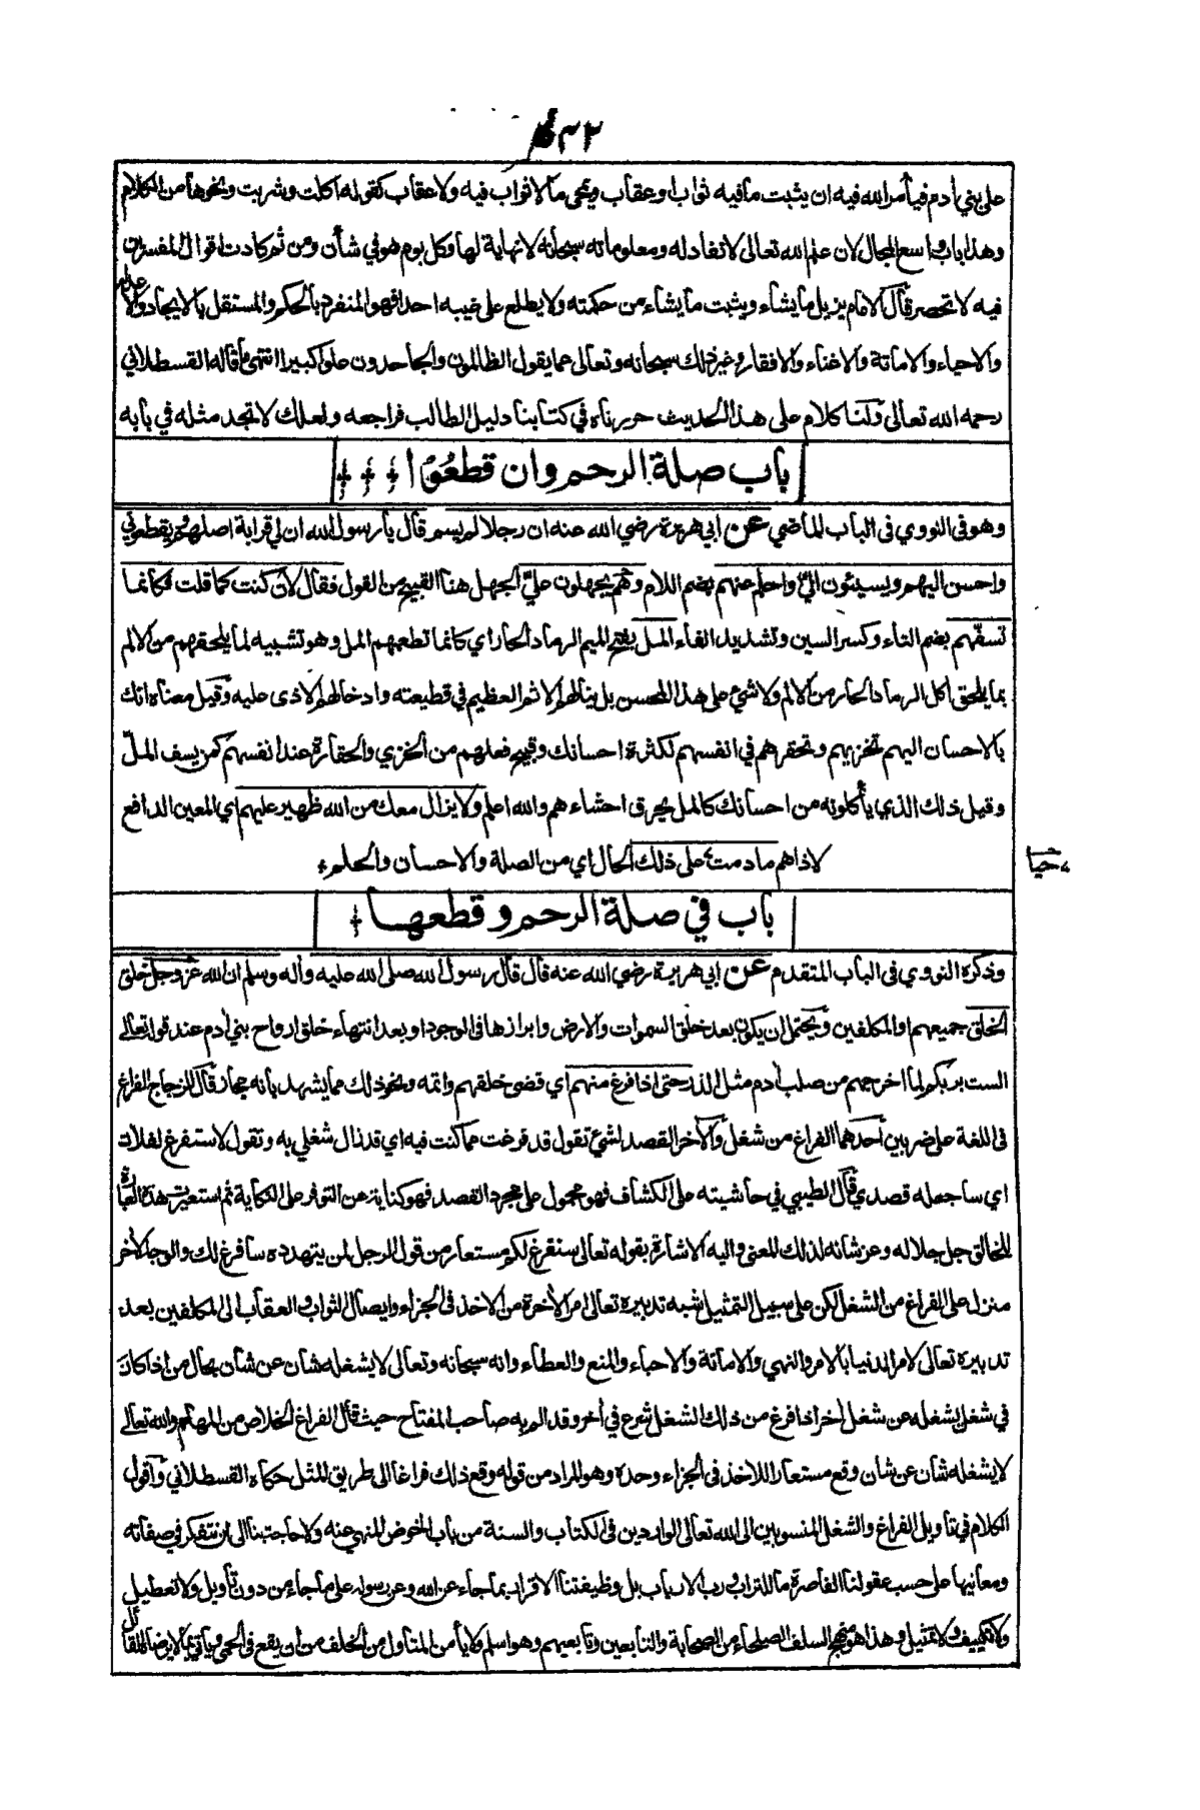 ٤٣٢
على بني أدم فيأمر الله فيه ان يثبت ما فيه ثواب او عقاب ويمحى ما لا ثواب فيه ولا عقاب كقوله اكلت وشربت ونحوها من الكلام
وهذا باب واسع المجال لان علم الله تعالى لا نفاد له ومعلوماته سبحانه لا نهاية لها وكل يوم هو في شأن ومن ثم كادت اقوال المفسرين
فيه لا تحصر قال الامام يزيل ما يشاء ويثبت ما يشاء من حكمته ولا يطلع على غيبه احدا فهو المنفرد بالحكم والمستقل بالايجاد والاعدام
والاحياء والاماتة والاغناء والافقار وغير ذلك سبحانه وتعالى عما يقول الظالمون والجاحدون علوا كبيرا انتهى ما قاله القسطلاني
رحمه الله تعالى ولنا كلام على هذا الحديث حررناه في كتابنا دليل الطالب فراجعه ولعلك لا تجد مثله في بابه
باب صلة الرحم وان قطعُوْا
وهو في النووي في الباب الماضي عن ابي هريرة رضي الله عنه ان رجلا لم يسم قال يا رسول الله ان لي قرابة اصلهم ويقطعوني
واحسن اليهم ويسيئون اليّ واحلم عنهم بضم اللام وهم يجهلون عليّ الجهل هنا القبيح من القول فقال لأن كنت كما قلت فكأنما
تسفّهم بضم التاء وكسر السين وتشديد الفاء المل بفتح الميم الرماد الحار اي كانما تطعمهم المل وهو تشبيه لما يلحقهم من الالم
بما يلحق اكل الرماد الحار من الالم ولا شيء على هذا المحسن بل ينالهم الاثم العظيم في قطيعته وادخالهم الاذى عليه وقيل معناه انك
بالاحسان اليهم تخزيهم وتحقرهم في انفسهم لكثرة احسانك وقبيح فعلهم من الخزي والحقارة عند انفسهم كمن يسف الملّ
وقيل ذلك الذي يأكلونه من احسانك كالمل يحرق احشاءهم والله اعلم ولا يزال معك من الله ظهير عليهم اي المعين الدافع
لاذاهم ما دمت على ذلك الحال اي من الصلة والاحسان والحلم
باب في صلة الرحم وقطعها
وذكره النووي في الباب المتقدم عن ابي هريرة رضي الله عنه قال قال رسول الله صلى الله عليه وأله وسلم ان الله عز وجل خلق
الخلق جميعهم او المكلفين ويحتمل ان يكون بعد خلق السموات والارض وابرازها في الوجود او بعد انتهاء خلق ارواح بني أدم عند قوله تعالى
الست بربكم لما اخرجهم من صلب أدم مثل الذر حتى اذا فرغ منهم اي قضى خلقهم واتمه ونحو ذلك مما يشهد بأنه مجاز وقال الزجاج الفراغ
في اللغة على ضربين أحدهما الفراغ من شغل والأخر القصد لشيء تقول قد فرغت مما كنت فيه اي قد زال شغلي به وتقول لاستفرغ لفلان
اي ساجعله قصدي قال الطيبي في حاشيته على الكشاف فهو محمول على مجرد القصد فهو كناية عن التوفر على النكاية ثم استعيرت هذه العبارة
للخالق جل جلاله وعز شانه لذلك المعنى واليه الاشارة بقوله تعالى سنفرغ لكم مستعار من قول الرجل لمن يتهدده سأفرغ لك والوجه الأخر
منزل على الفراغ من الشغل لكن على سبيل التمثيل شبه تدبيره تعالى امر الأخرة من الاخذ في الجزاء وايصال الثواب والعقاب الى المكلفين بعد
تدبيره تعالى لامر الدنيا بالامر والنهي والاماتة والاحياء والمنع والعطاء وانه سبحانه وتعالى لا يشغله شأن عن شأن بحال من اذا كان
في شغل يشغله عن شغل أخر اذا فرغ من ذلك الشغل شرع في أخر وقد الم به صاحب المفتاح حيث قال الفراغ الخلاص من المهام والله تعالى
لا يشغله شأن عن شأن وقع مستعارا للاخذ في الجزاء وحده وهو المراد من قوله وقع ذلك فراغا الى طريق المثل حكاه القسطلاني واقول
الكلام في تأويل الفراغ والشغل المنسوبين الى الله تعالى الواردين في الكتاب والسنة من باب الخوض المنهي عنه ولا حاجة بنا الى ان نتفكر في صفاته
ومعانيها على حسب عقولنا القاصرة ما للتراب ورب الارباب بل وظيفتنا الاقرار بما جاء عن الله وعن رسوله على ما جاء من دون تأويل ولا تعطيل
ولا تكييف ولا تمثيل وهذا هو منهج السلف الصلحاء من الصحابة والتابعين وتابعيهم وهو اسلم ولا يأمن المتأول من الخلف من ان يقع في الحمى ويأتي بما لا يرضاه المقال